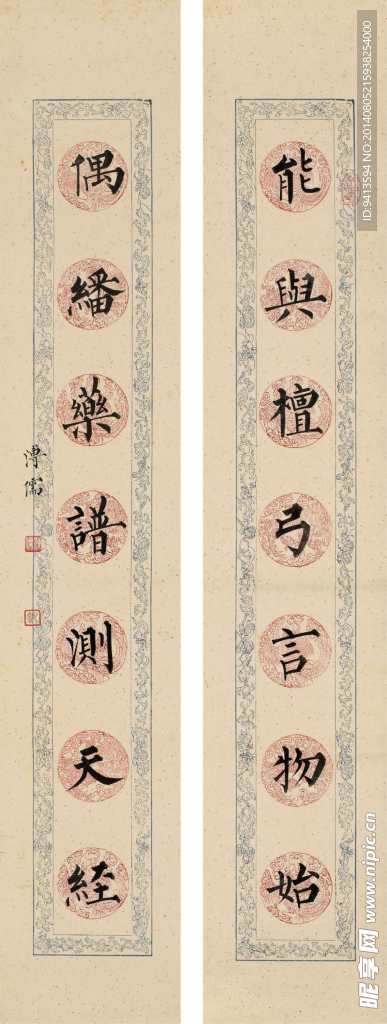 能與檀弓言物始
偶繙藥譜測天經
溥儒
昵享网 www.nipic.cn
ID:9413594 NO:20140805215938254000